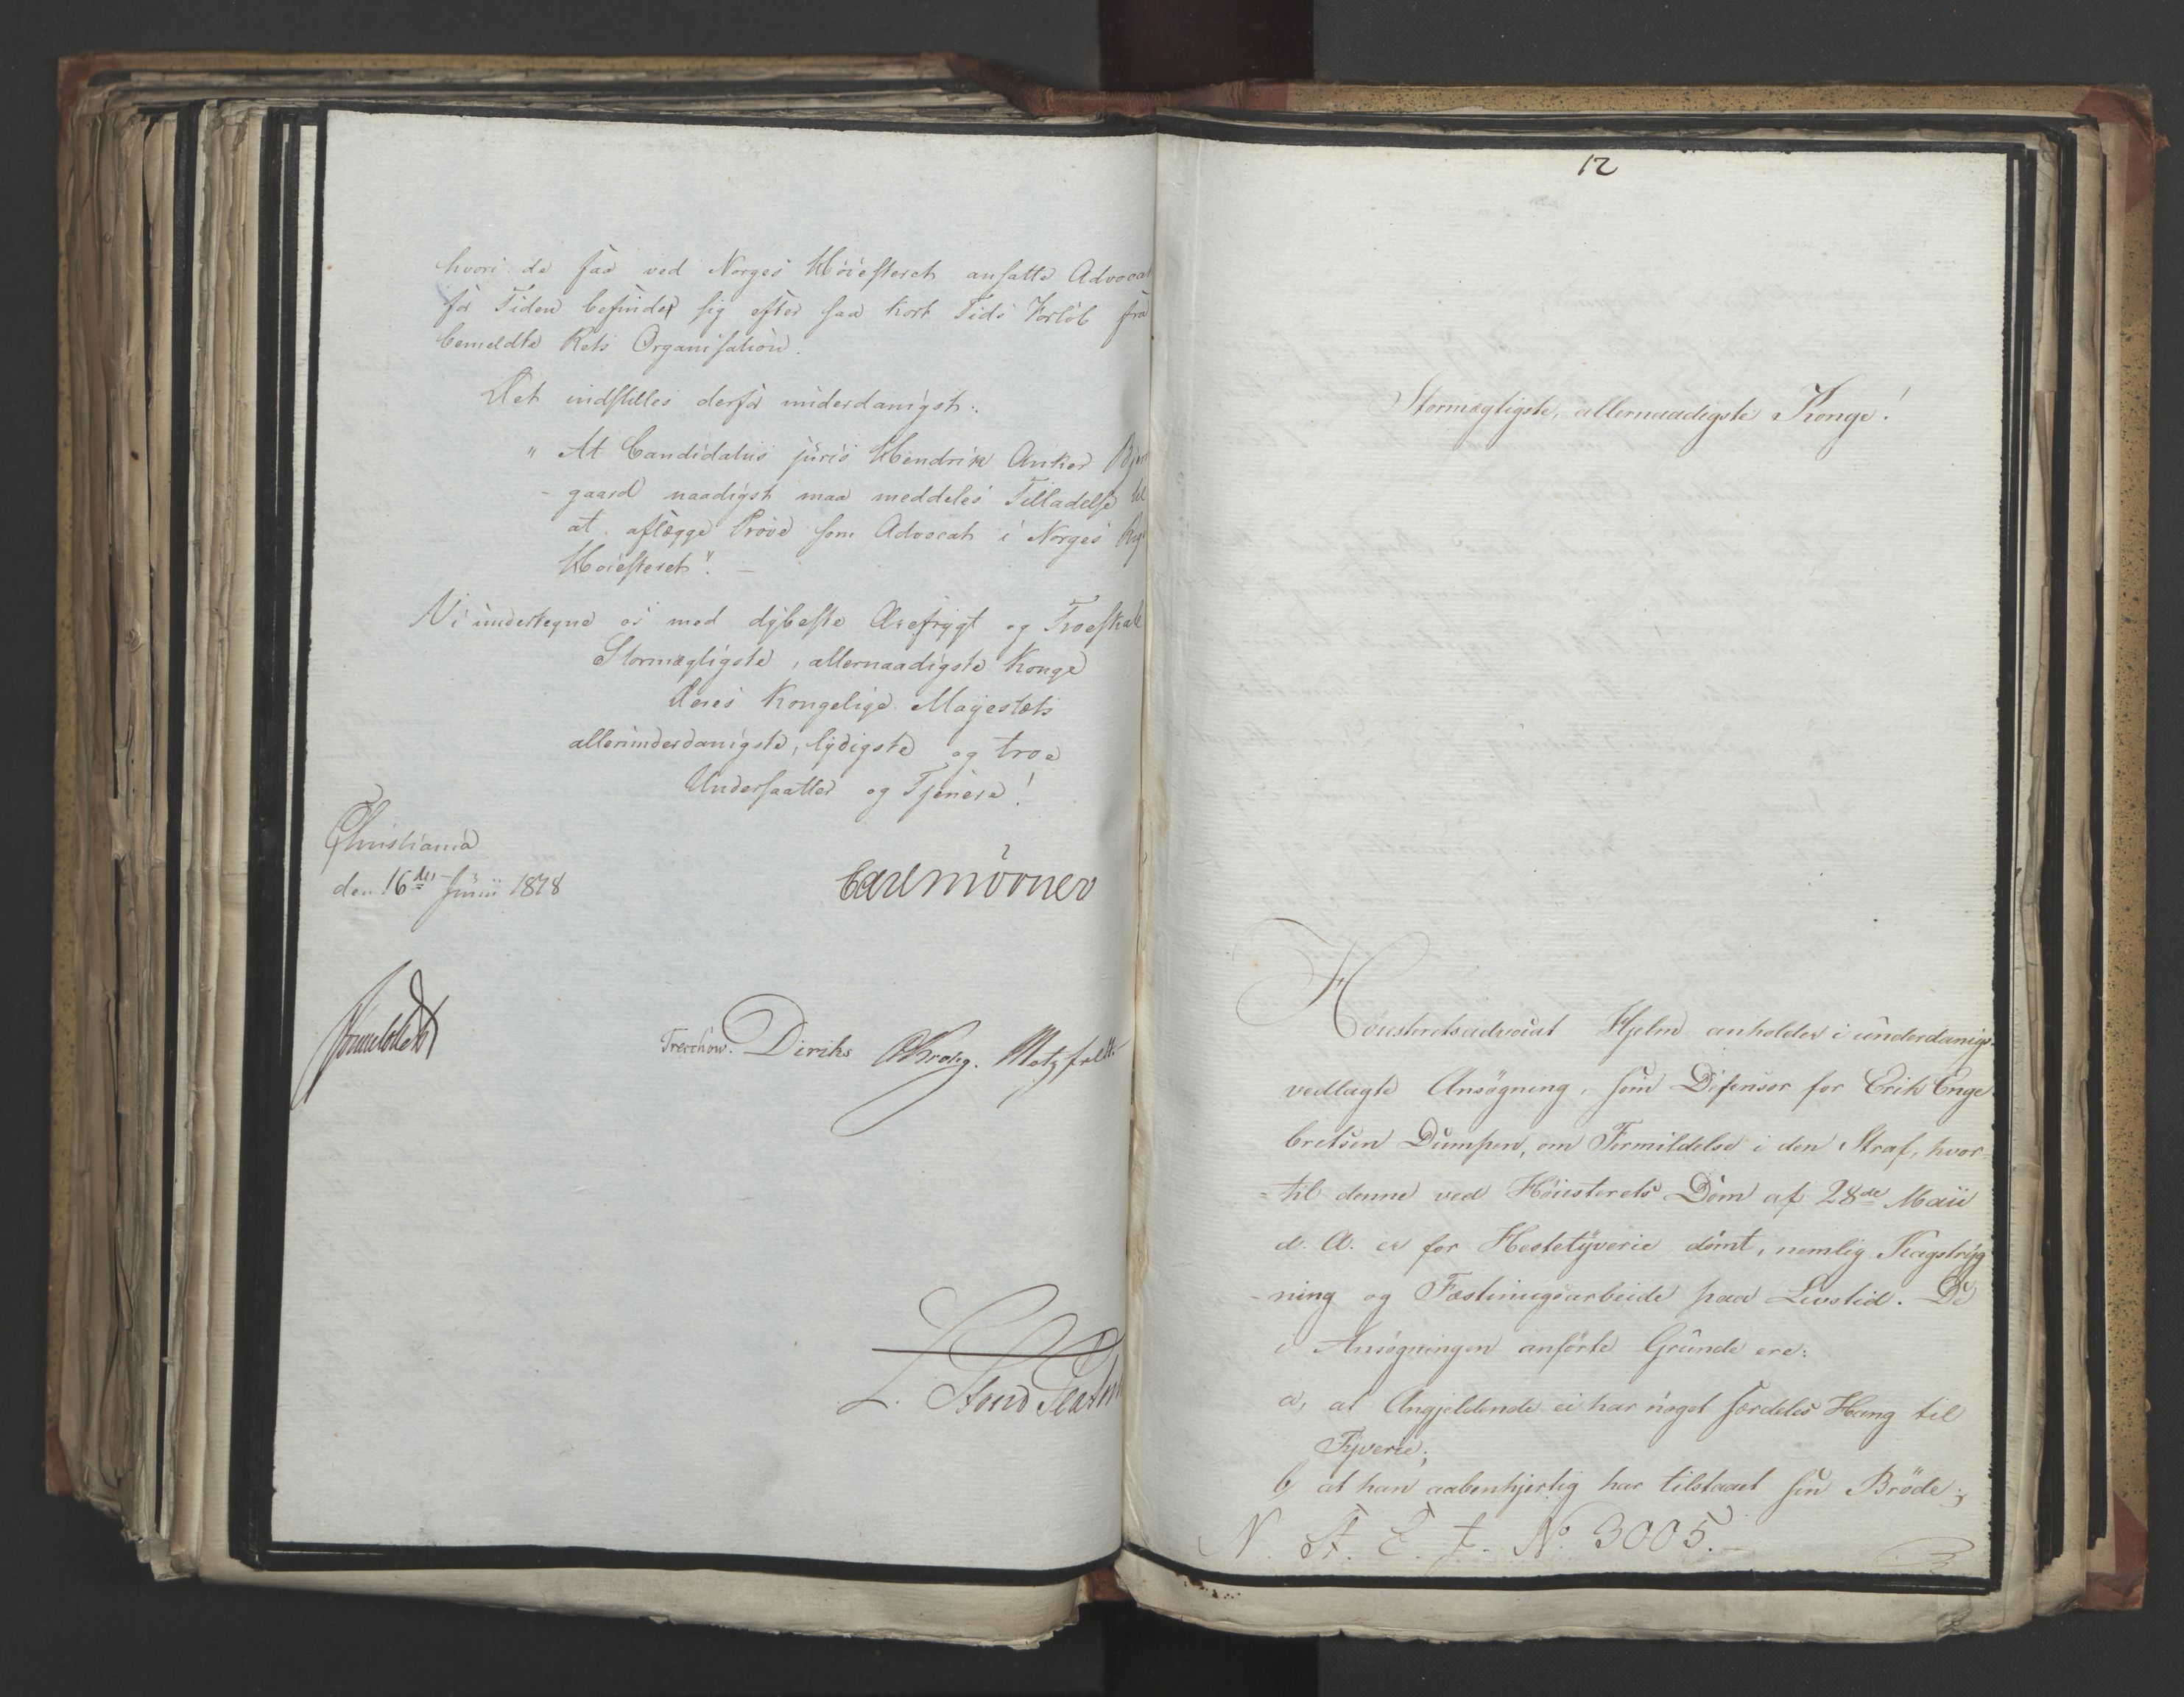 hvori de faa ved Norges Höiesteret ansatte Advocat
for Tiden befinder sig efter saa kort Tids Forlöb fra
bemeldte Rets Organisation.
Det indstilles derfor underdanigst:
"At Candidatus juris Hendrik Anker Bjerre
- gaard naadigst maa meddeles Tilladelse til
at aflægge Pröve som Advocat i Norges Rige
Höiesteret". -
Vi undertegne os med dybeste Ærefrygt og Troeskab
Stormægtigste, allernaadigste Konge
Deres Kongelige Majestæts
allerunderdanigste, lydigste og troe
Undersaatter og Tjenere!
Christiania
den 16de Junii 1818
Carl Mörner
Treschow. Diriks Krohg. Motzfeldt
12
Stormægtigste, allernaadigste Konge!
Höiesteretsadvocat Hjelm anholder i underdanigst
vedlagte Ansögning, som Defensor for Erik Enge
bretsen Dumpen, om Formildelse i den Straf, hvor
=til denne ved Höiesterets Dom af 28de Maii
d. A. er for Hestetyverie dömt, nemlig Kagstryg
-ning og Fæstningsarbeide paa Livstid. De
i Ansögningen anförte Grunde ere:
a, at Angjeldende ei har noget særdeles Hang til
Tyverie;
b, at han aabenhjertig har tilstaaet sin Bröde;
N. St. E. J. No. 3005.